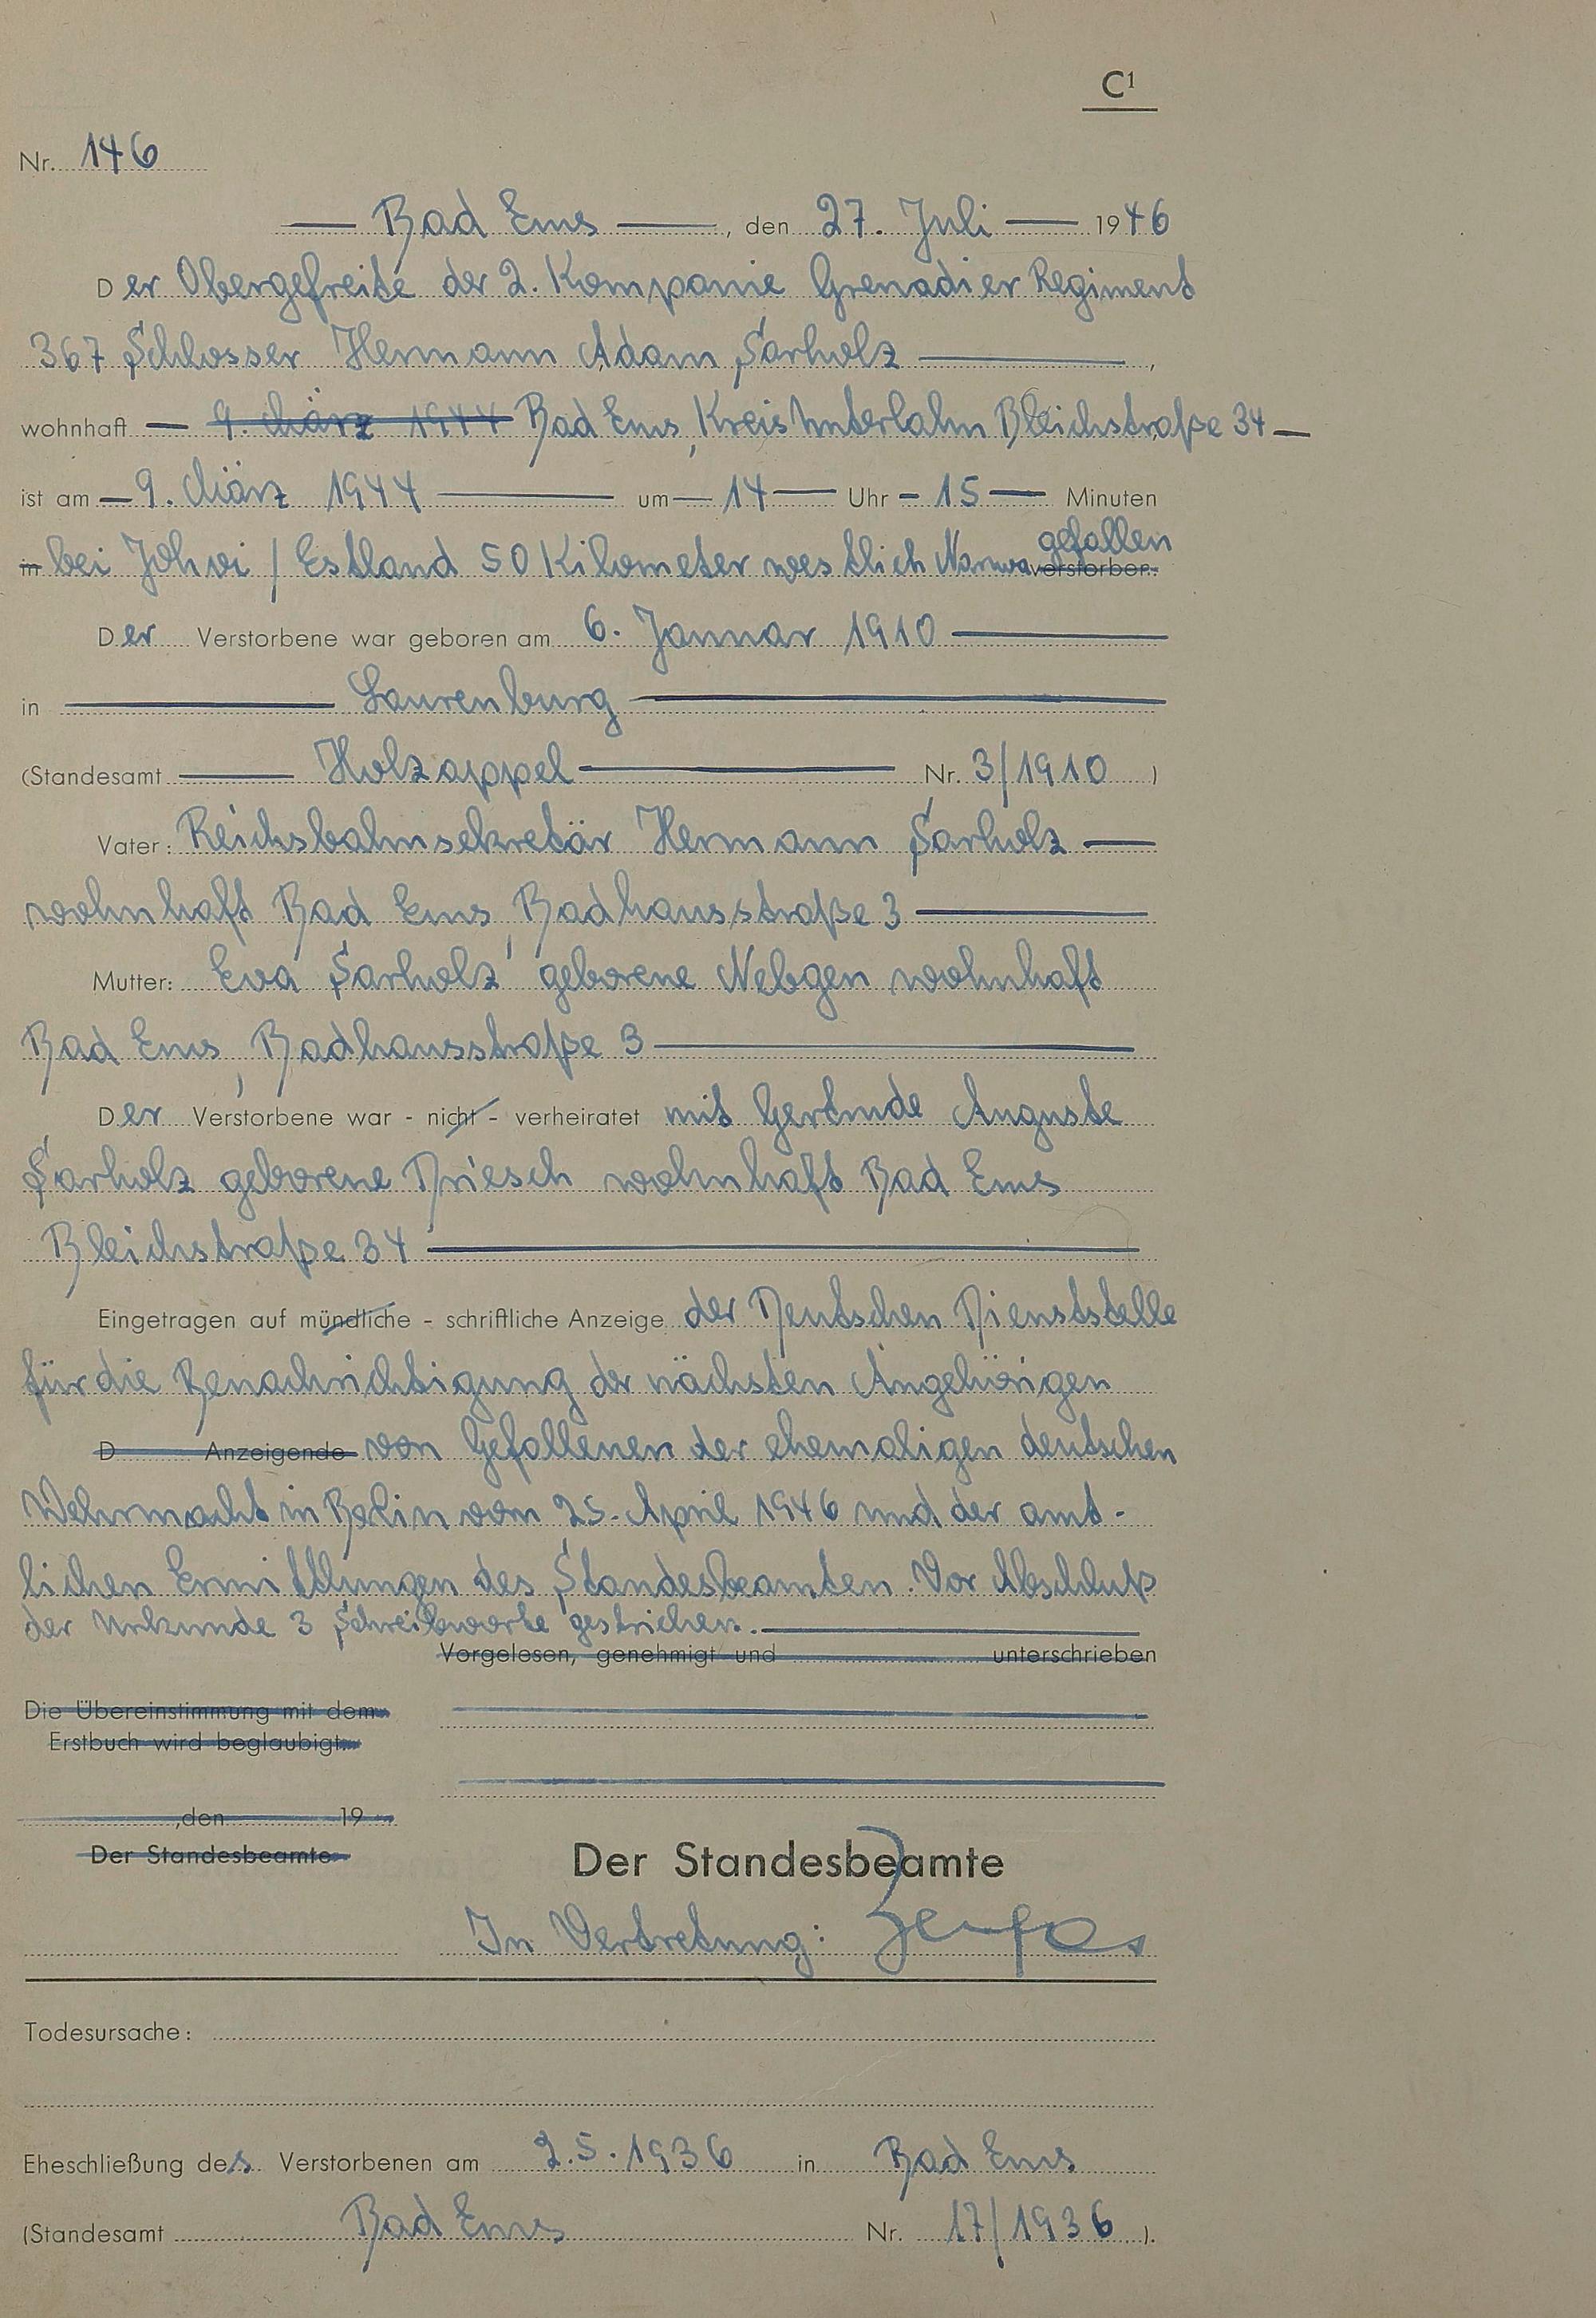 C1
Nr. 146
— Bad Ems —, den 27. Juli — 1946
Der Obergefreite der 2. Kompanie Grenadier Regiment
367 Schlosser Hermann Adam Sarholz —,
wohnhaft — 9. März 1944 Bad Ems, Kreis Unterlahn Bleichstraße 34 —
ist am — 9. März 1944 — um — 14 — Uhr — 15 — Minuten
in bei Johvi / Estland 50 Kilometer westlich Narwa verstorben. gefallen
Der Verstorbene war geboren am 6. Januar 1910 —
in — Laurenburg —
(Standesamt — Holzappel — Nr. 3/1910 )
Vater: Reichsbahnsekretär Hermann Sarholz —
wohnhaft Bad Ems, Badhausstraße 3 —
Mutter: Eva Sarholz geborene Nebgen wohnhaft
Bad Ems, Badhausstraße 3 —
Der Verstorbene war - nicht - verheiratet mit Gertrude Auguste
Sarholz geborene Driesch wohnhaft Bad Ems
Bleichstraße 34 —
Eingetragen auf mündliche - schriftliche Anzeige der Deutschen Dienststelle
für die Benachrichtigung der nächsten Angehörigen
D Anzeigende von Gefallenen der ehemaligen deutschen
Wehrmacht in Berlin vom 25. April 1946 und der amt-
lichen Ermittlungen des Standesbeamten. Vor Abschluß
der Urkunde 3 Schreibworte gestrichen. —
Vorgelesen, genehmigt und unterschrieben
Die Übereinstimmung mit dem
Erstbuch wird beglaubigt
, den 19
Der Standesbeamte
Der Standesbeamte
In Vertretung:
Todesursache:
Eheschließung des Verstorbenen am 2.5.1936 in Bad Ems
(Standesamt Bad Ems Nr. 17/1936 ).